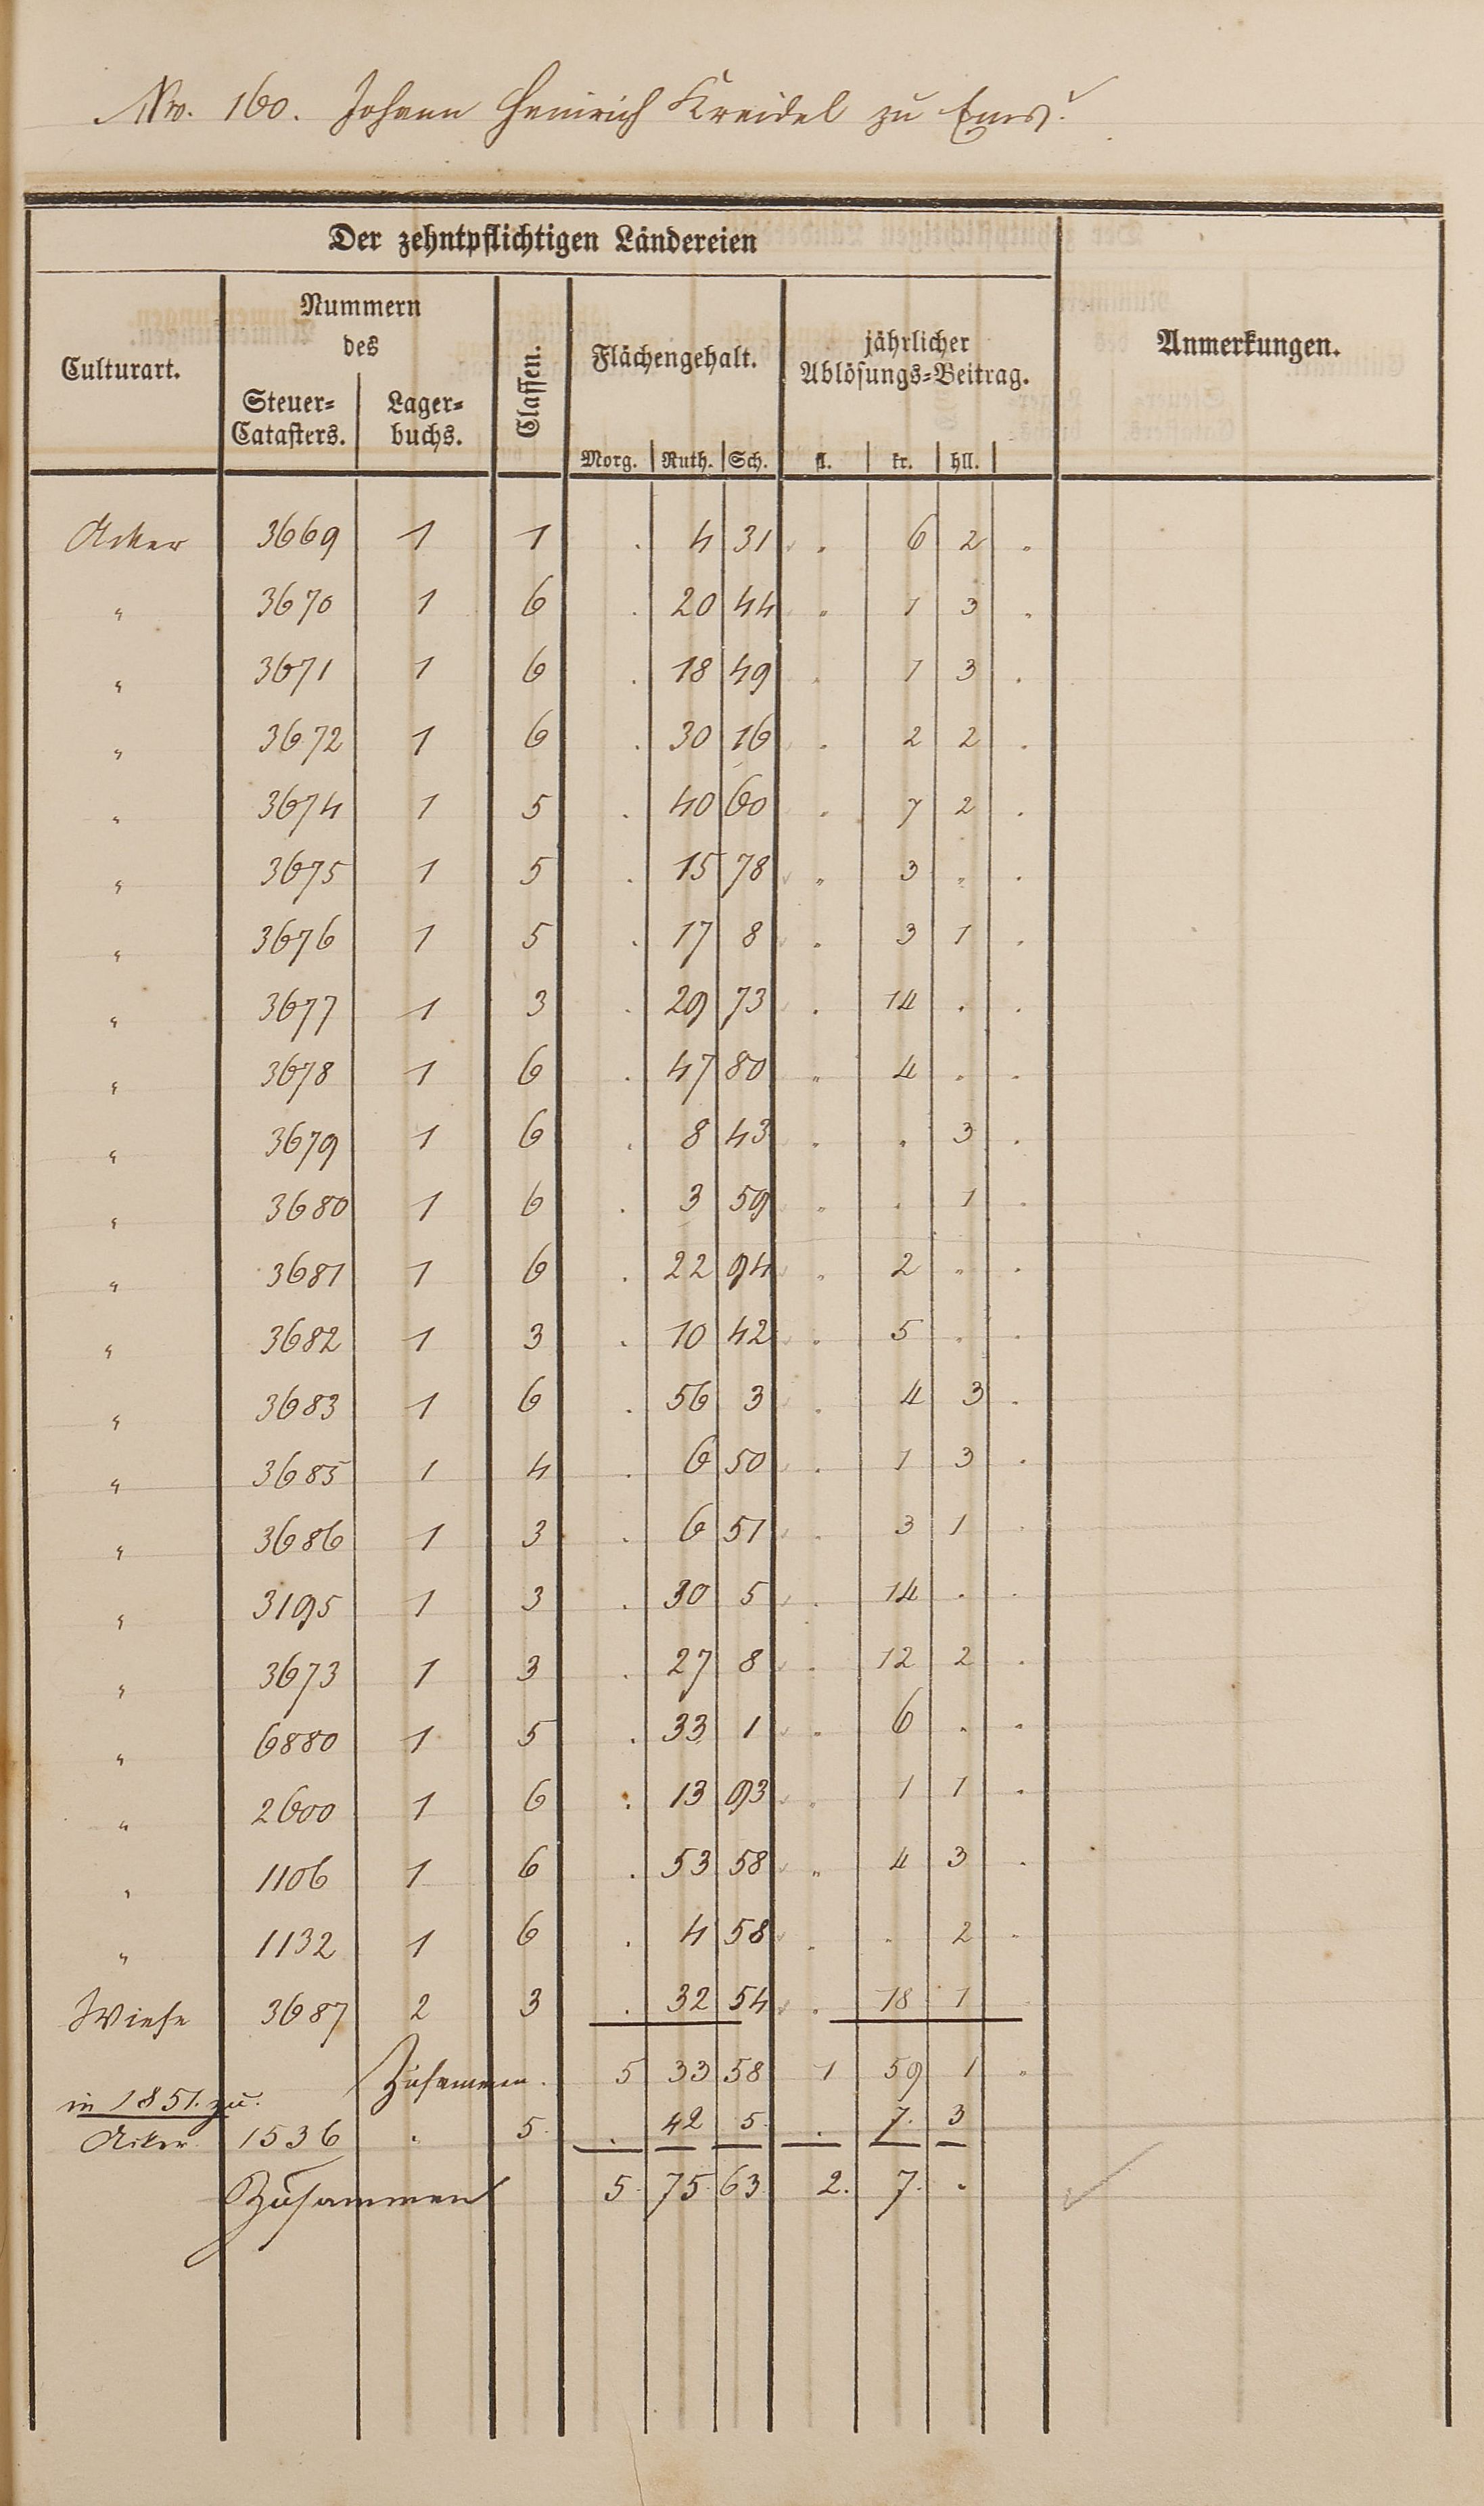 No. 160. Johann Heinrich Kreidel zu Ems.
Der zehntpflichtigen Ländereien
Culturart. Nummern des Steuer-Catasters. Lagerbuchs. Classen. Flächengehalt. jährlicher Ablösungs-Beitrag. Anmerkungen.
Morg. Ruth. Sch. fl. kr. hll.
Acker 3669 1 1 . 4 31 " 6 2 "
" 3670 1 6 . 20 44 " 1 3 .
" 3671 1 6 . 18 49 " 1 3 .
" 3672 1 6 . 30 16 " 2 2 .
" 3674 1 5 . 40 60 " 7 2 .
" 3675 1 5 . 15 78 " 3 " .
" 3676 1 5 . 17 8 " 3 1 .
" 3677 1 3 . 29 73 . 14 . .
" 3678 1 6 . 47 80 " 4 . .
" 3679 1 6 . 8 43 . . 3 .
" 3680 1 6 . 3 59 " . 1 .
" 3681 1 6 . 22 94 . 2 " .
" 3682 1 3 . 10 42 . 5 . .
" 3683 1 6 . 56 3 . 4 3 .
" 3685 1 4 . 6 50 . 1 3 .
" 3686 1 3 . 6 51 . 3 1 .
" 3195 1 3 . 30 5 . 14 . .
" 3673 1 3 . 27 8 . 12 2 .
" 6880 1 5 . 33 1 " 6 . .
" 2600 1 6 . 13 93 " 1 1 .
" 1106 1 6 . 53 58 " 4 3 .
" 1132 1 6 . 4 58 . . 2 .
Wiese 3687 2 3 . 32 54 . 18 1
Zusammen. 5 33 58 1 59 1 "
in 1851. zu.
Acker. 1536 . 5. . 42 5. . 7. 3
Zusammen 5. 75. 63. 2. 7. .